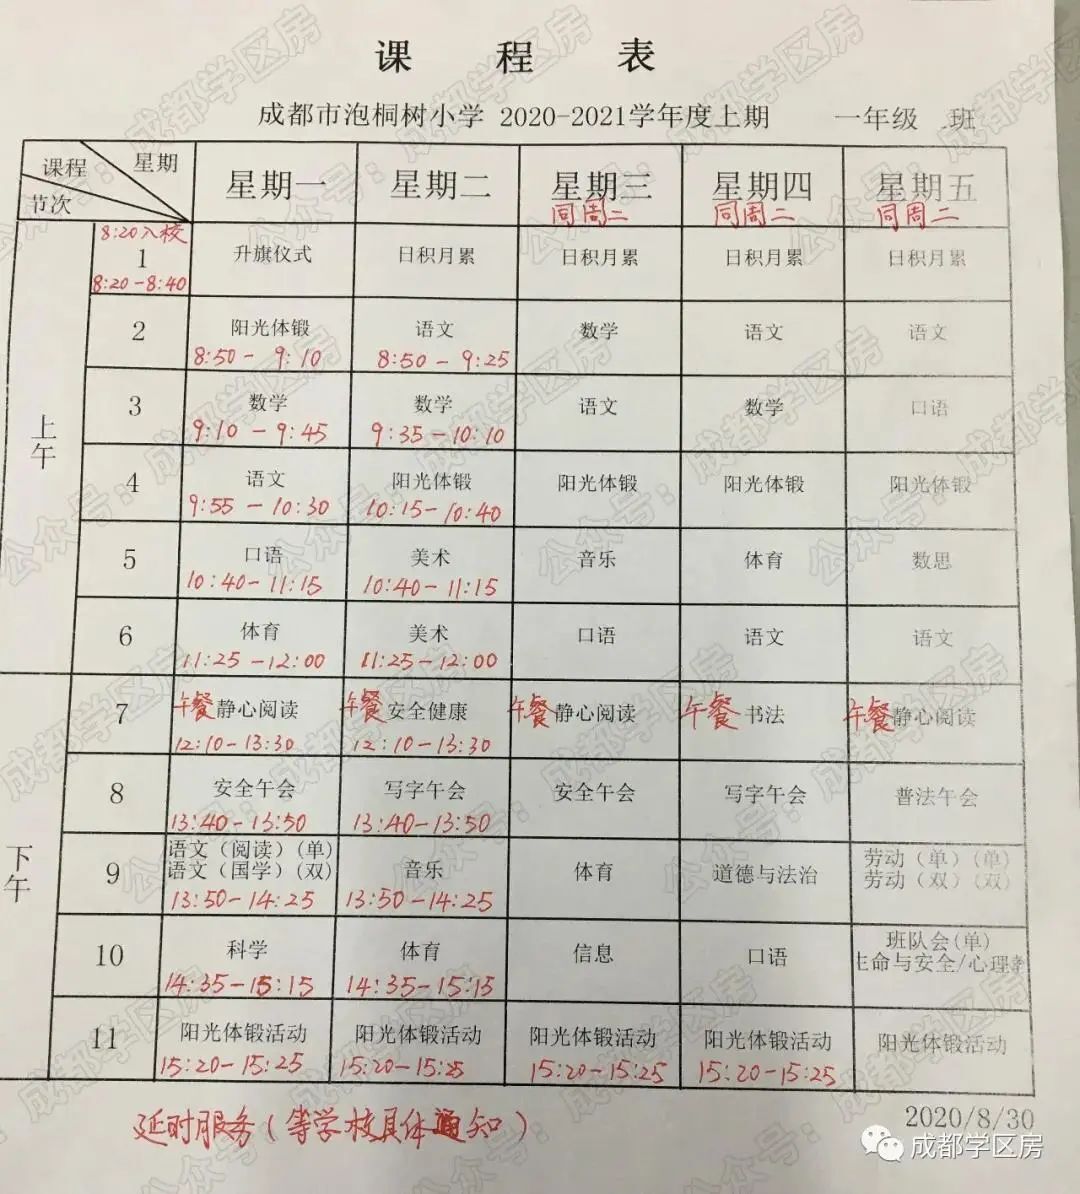 课 程 表
成都市泡桐树小学 2020-2021学年度上期 一年级 班
课程 星期
节次
星期一 星期二 星期三 星期四 星期五
同周二 同周二 同周二
上午
8:20入校
1 升旗仪式 日积月累 日积月累 日积月累 日积月累
8:20-8:40
2 阳光体锻 语文 数学 语文 语文
8:50-9:10 8:50-9:25
3 数学 数学 语文 数学 口语
9:10-9:45 9:35-10:10
4 语文 阳光体锻 阳光体锻 阳光体锻 阳光体锻
9:55-10:30 10:15-10:40
5 口语 美术 音乐 体育 数思
10:40-11:15 10:40-11:15
6 体育 美术 口语 语文 语文
11:25-12:00 11:25-12:00
下午
7 午餐静心阅读 午餐安全健康 午餐静心阅读 午餐书法 午餐静心阅读
12:10-13:30 12:10-13:30
8 安全午会 写字午会 安全午会 写字午会 普法午会
13:40-13:50 13:40-13:50
9 语文（阅读）(单) 音乐 体育 道德与法治 劳动（单）(单)
语文（国学）(双) 劳动（双）(双)
13:50-14:25 13:50-14:25
10 科学 体育 信息 口语 班队会(单)
生命与安全/心理
14:35-15:15 14:35-15:15
11 阳光体锻活动 阳光体锻活动 阳光体锻活动 阳光体锻活动 阳光体锻活动
15:20-15:25 15:20-15:25 15:20-15:25 15:20-15:25
延时服务（等学校具体通知）
2020/8/30
成都学区房
公众号：成都学区房